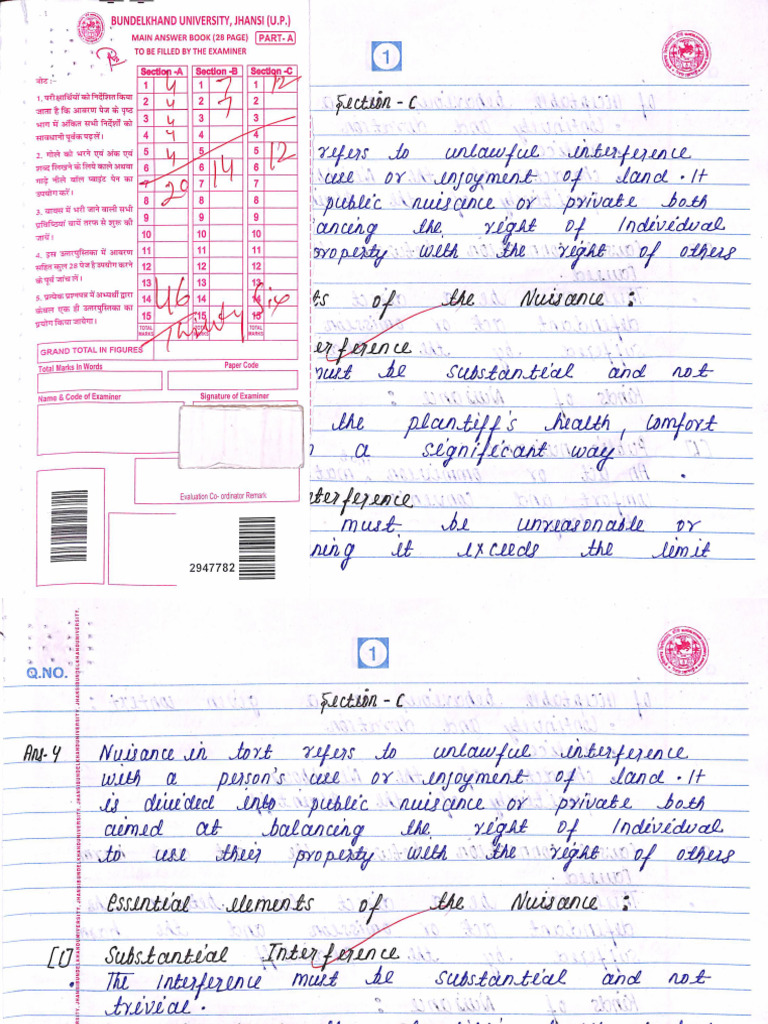 BUNDELKHAND UNIVERSITY, JHANSI (U.P.)
MAIN ANSWER BOOK (28 PAGE) PART- A
TO BE FILLED BY THE EXAMINER
नोट :-
1. परीक्षार्थियों को निर्देशित किया
जाता है कि आवरण पेज के पृष्ठ
भाग में अंकित सभी निर्देशों को
सावधानी पूर्वक पढ़लें।
2. गोले को भरने एवं अंक एवं
शब्द लिखने के लिये काले अथवा
गाढ़े नीले वाल प्वाइंट पेन का
उपयोग करें।
3. बाक्स में भरी जाने वाली सभी
प्रविष्टियां बायें तरफ से शुरू की
जायें।
4. इस उत्तरपुस्तिका में आवरण
सहित कुल 28 पेज है उपयोग करने
के पूर्व जांच लें।
5. प्रत्येक प्रश्नपत्र में अभ्यर्थी द्वारा
केवल एक ही उत्तरपुस्तिका का
प्रयोग किया जायेगा।
Section -A Section -B Section -C
1 4 1 7 1 12
2 4 2 7 2
3 4 3 3
4 4 4 4
5 4 5 5 12
6 6 14 6
7 20 7 7
8 8 8
9 9 9
10 10 10
11 11 11
12 12 12
13 13 13
14 46 14 14
15 15 15
TOTAL MARKS TOTAL MARKS TOTAL MARKS
Six
GRAND TOTAL IN FIGURES
Total Marks in Words Paper Code
Name & Code of Examiner Signature of Examiner
Evaluation Co- ordinator Remark
2947782
1
Section - C
refers to unlawful interference
use or enjoyment of land. It
public nuisance or private both
ancing the right of Individual
property with the right of others
ts of the Nuisance :
erference
must be substantial and not
the plantiff's health, comfort
a significant way
nterference
must be unreasonable or
ning it exceeds the limit
1
Q.NO.
Section - C
Ans- 4 Nuisance in tort refers to unlawful interference
with a person's use or enjoyment of land. It
is divided into public nuisance or private both
aimed at balancing the right of Individual
to use their property with the right of others
Essential elements of the Nuisance :
[1] Substantial Interference
• The interference must be substantial and not
trivial.